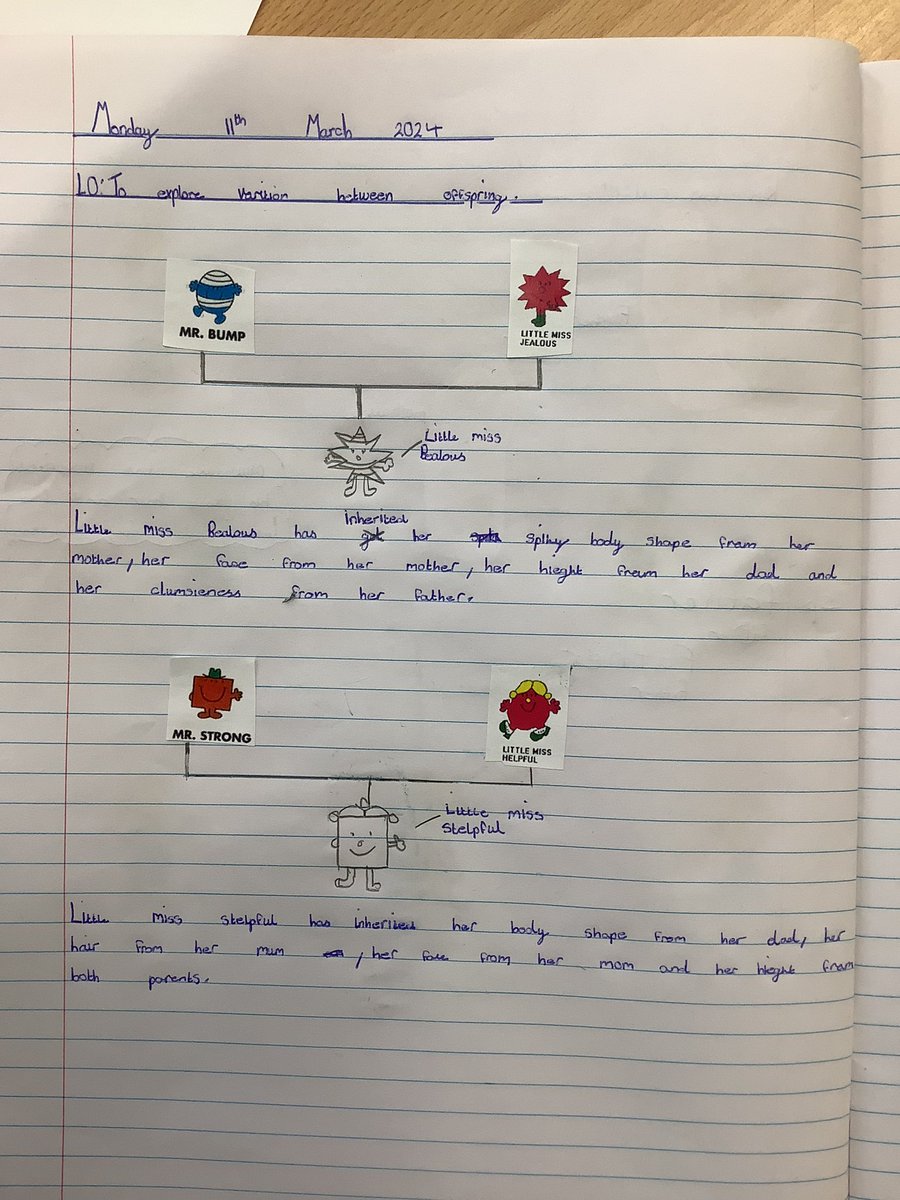 Monday 11th March 2024
LO: To explore varition between offspring.
MR. BUMP
LITTLE MISS
JEALOUS
Little miss
Bealous
inherited
Little miss Bealous has got her spik spiky body shape fram her
mother, her face from her mother, her hieght freum her dad and
her clumsieness from her father.
MR. STRONG
LITTLE MISS
HELPFUL
Little miss
Stelpful
Little miss stelpful has inherited her body shape from her dad, her
hair from her mum , her face from her mom and her hieght fram
both parents.